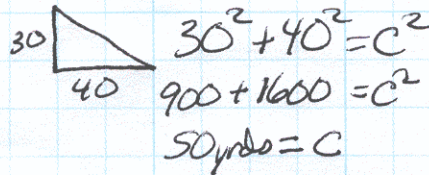 30
40
30² + 40² = C²
900 + 1600 = C²
50 yrds = C